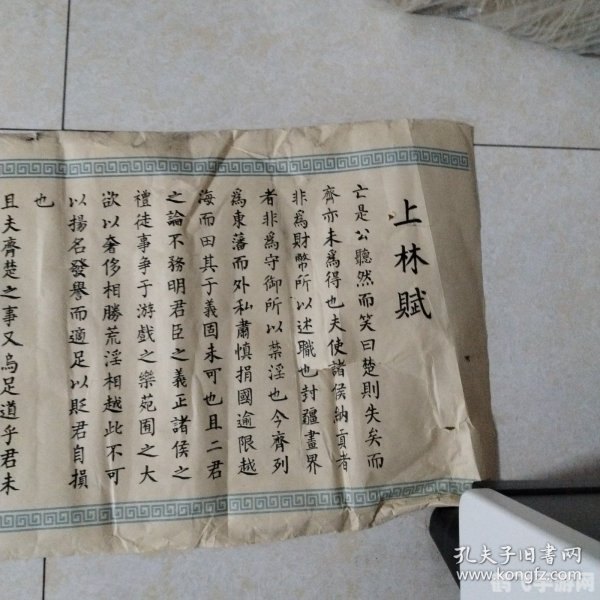 上林賦
亡是公听然而笑曰楚則失矣而
齊亦未爲得也夫使諸侯納貢者
非爲財幣所以述職也封疆畫界
者非爲守御所以禁淫也今齊列
爲東藩而外私肅慎捐國逾限越
海而田其于義固未可也且二君
之論不務明君臣之義正諸侯之
禮徒事爭于游戲之樂苑囿之大
欲以奢侈相勝荒淫相越此不可
以揚名發譽而適足以貶君自損
也
且夫齊楚之事又烏足道乎君未
孔夫子旧书网
www.kongfz.com